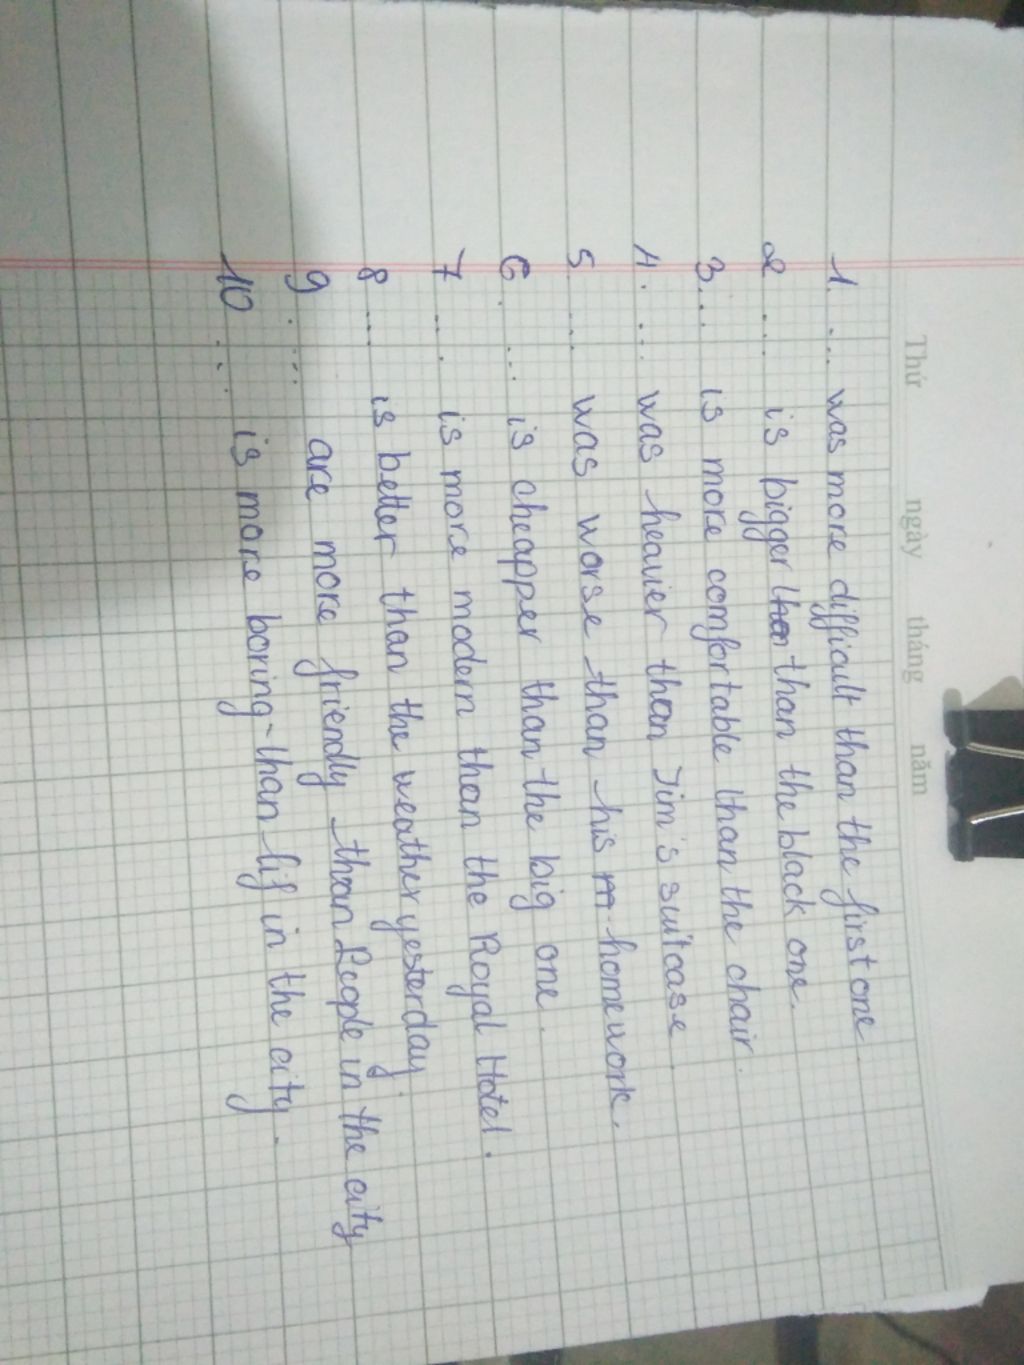 Thứ ngày tháng năm
1. ... was more difficult than the first one
2 ... is bigger than the black one.
3 ... is more comfortable than the chair.
4. ... was heavier than Jim's suitcase
5. ... was worse than his homework.
6. ... is cheapper than the big one.
7 ... is more modern than the Royal Hotel.
8 ... is better than the weather yesterday.
9. ... are more friendly than People in the city
10 ... is more boring than lif in the city.